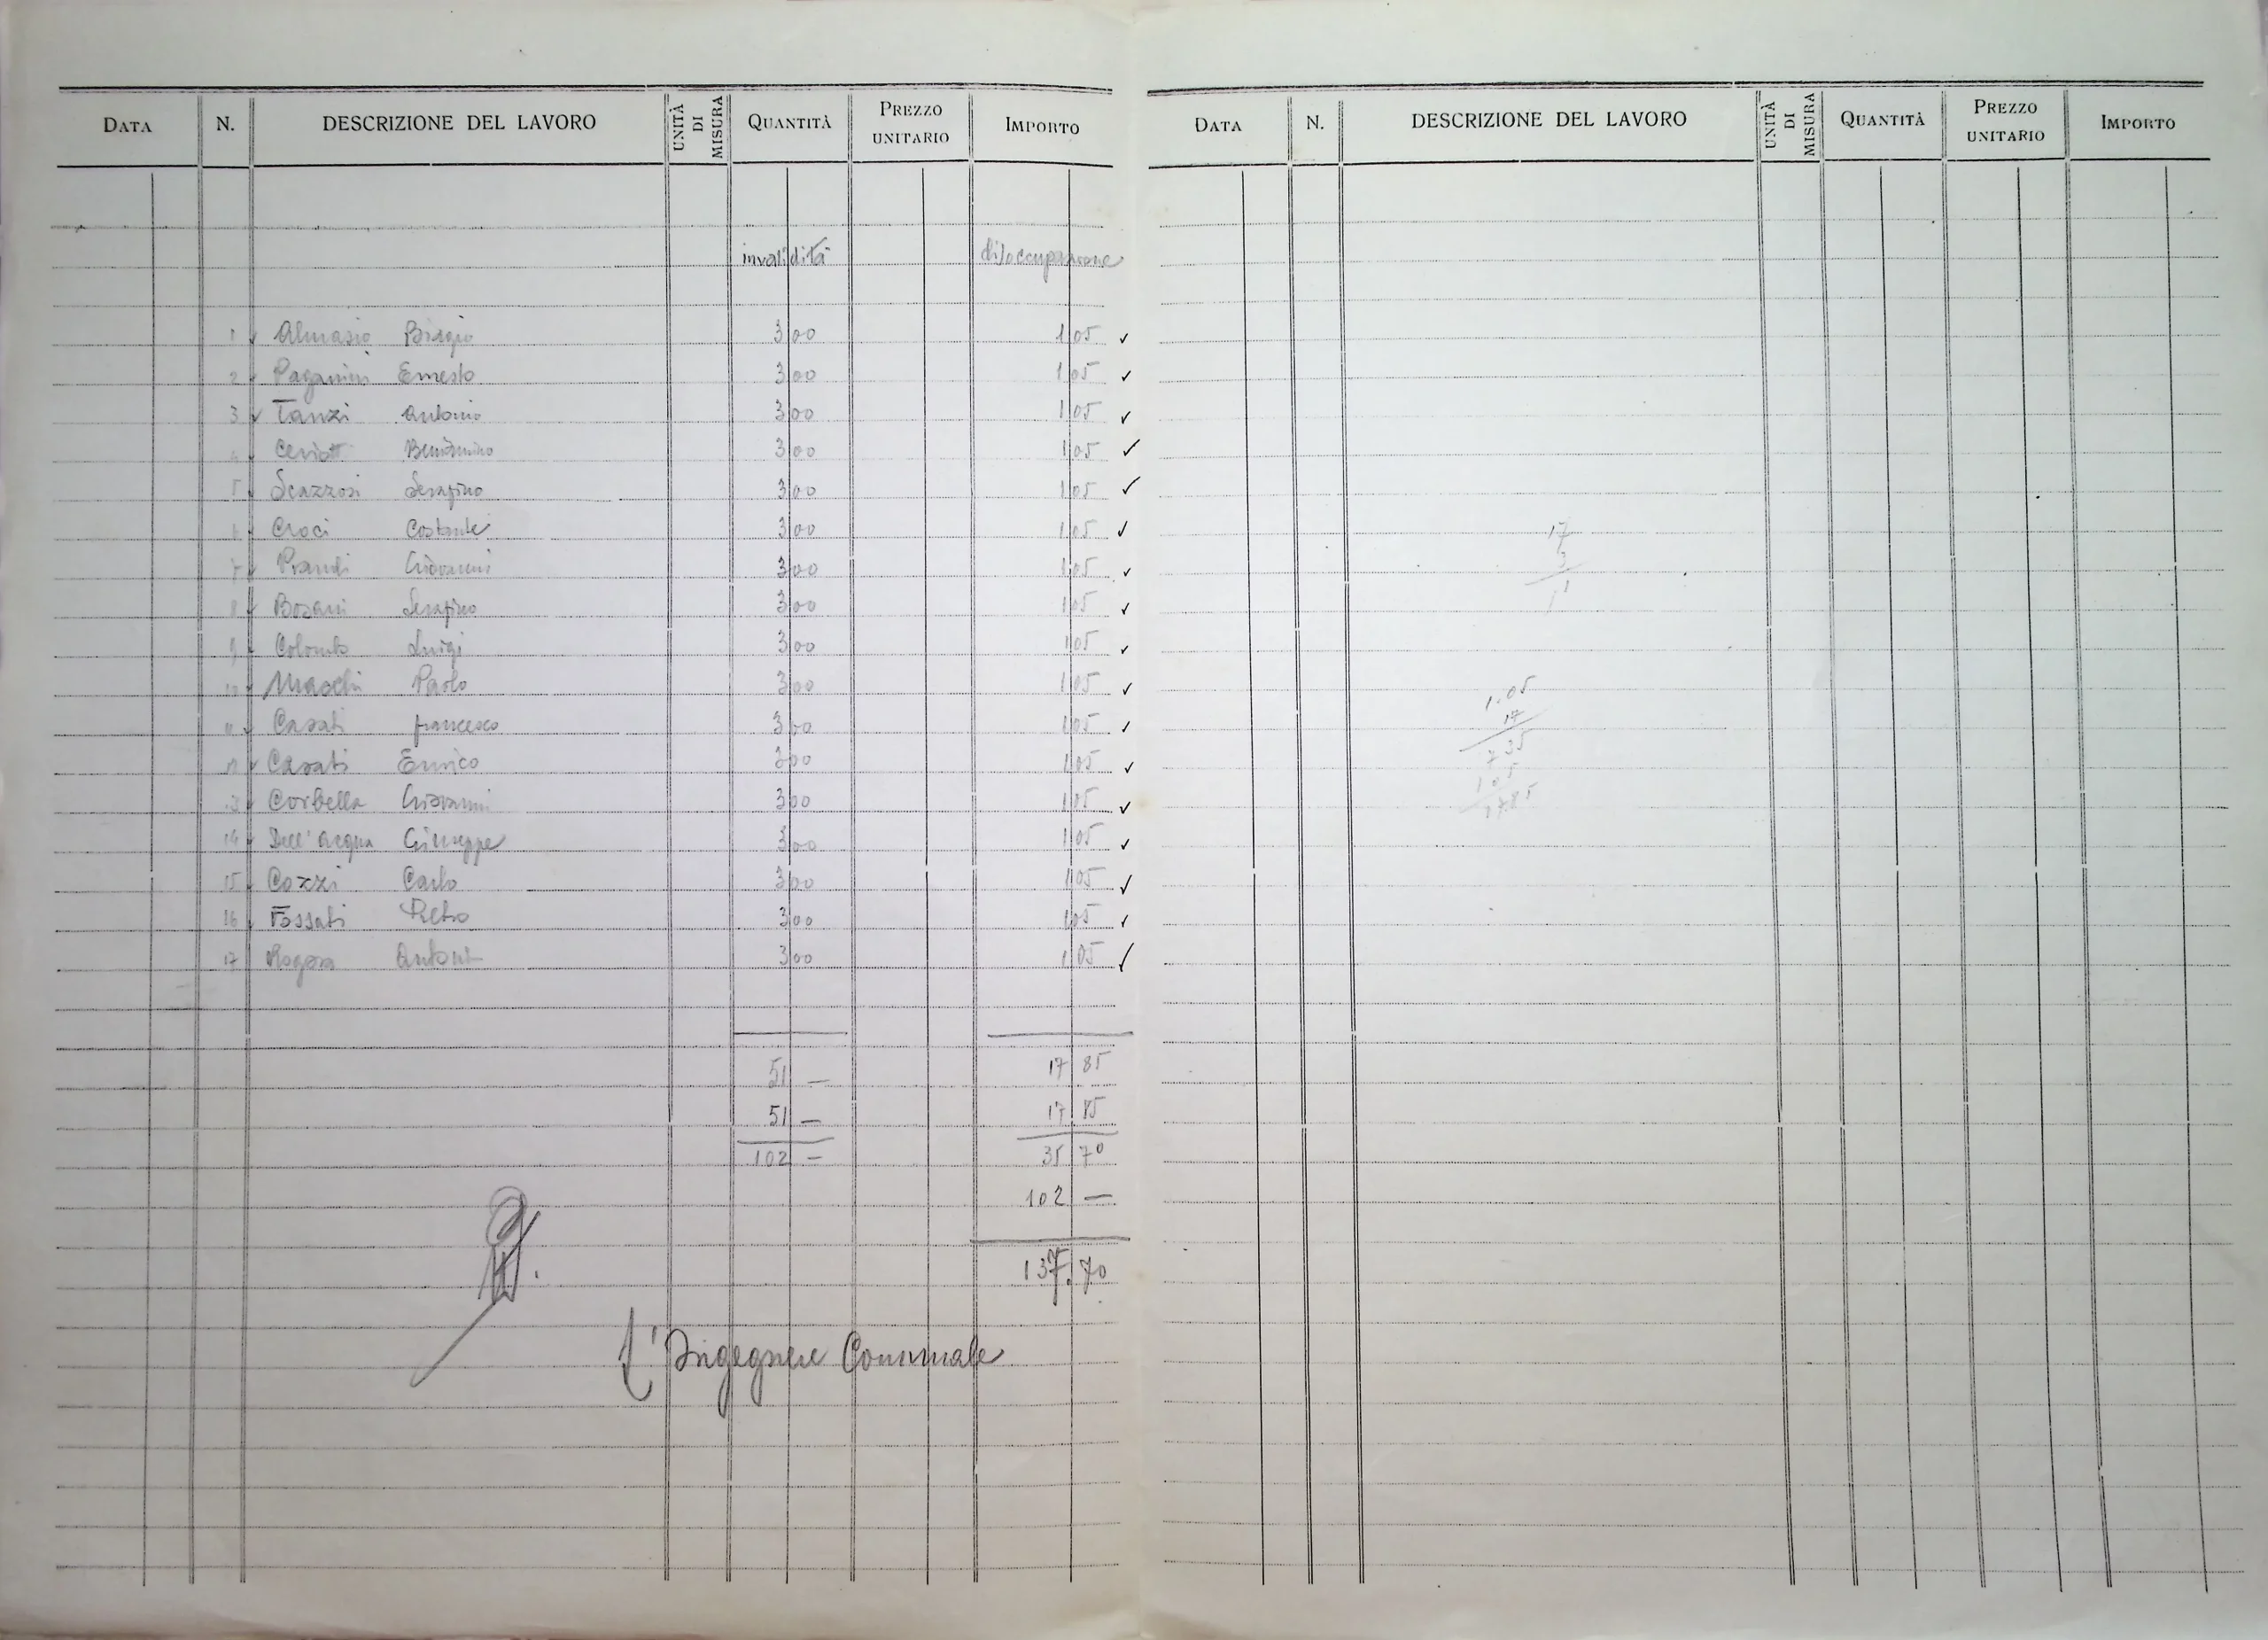 DATA N. DESCRIZIONE DEL LAVORO UNITÀ DI MISURA QUANTITÀ PREZZO UNITARIO IMPORTO
invalidità disoccupazione
1 Almasio Biagio 3 00 1 05 ✓
2 Paganini Ernesto 3 00 1 05 ✓
3 Tanzi Antonio 3 00 1 05 ✓
4 Ceriotti Beniamino 3 00 1 05 ✓
5 Scazzosi Serafino 3 00 1 05 ✓
6 Croci Costante 3 00 1 05 ✓
7 Prandi Giovanni 3 00 1 05 ✓
8 Serafino 3 00 1 05 ✓
9 Colombo Luigi 3 00 1 05 ✓
10 Macchi Paolo 3 00 1 05 ✓
11 Casati francesco 3 00 1 05 ✓
12 Casati Enrico 3 00 1 05 ✓
13 Corbella Giovanni 3 00 1 05 ✓
14 Dell'Acqua Giuseppe 3 00 1 05 ✓
15 Cozzi Carlo 3 00 1 05 ✓
16 Fossati Pietro 3 00 1 05 ✓
17 Rogora Antonio 3 00 1 05 ✓
51 — 17 85
51 — 17 85
102 — 35 70
102 —
137.70
L'Ingegnere Comunale
DATA N. DESCRIZIONE DEL LAVORO UNITÀ DI MISURA QUANTITÀ PREZZO UNITARIO IMPORTO
17
3
1.05
17
735
105
1785